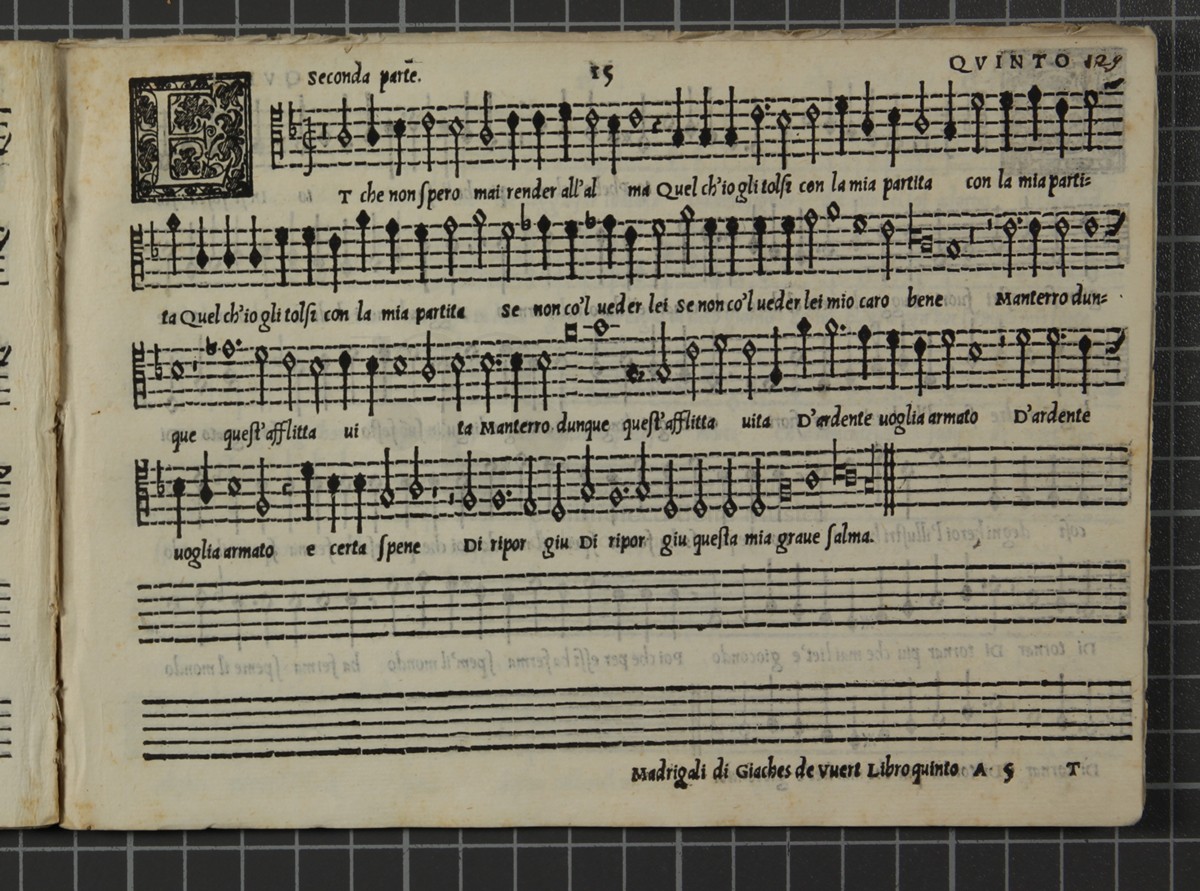 Seconda parte. 15 QVINTO 129
ET che non spero mai render all'al ma Quel ch'io gli tolsi con la mia partita con la mia parti=
ta Quel ch'io gli tolsi con la mia partita Se non co'l ueder lei Se non co'l ueder lei mio caro bene Manterro dun=
que quest'afflitta ui ta Manterro dunque quest'afflitta uita D'ardente uoglia armato D'ardente
uoglia armato e certa spene Di ripor giu Di ripor giu questa mia graue salma.
Madrigali di Giaches de Vuert Libro quinto A 5 T